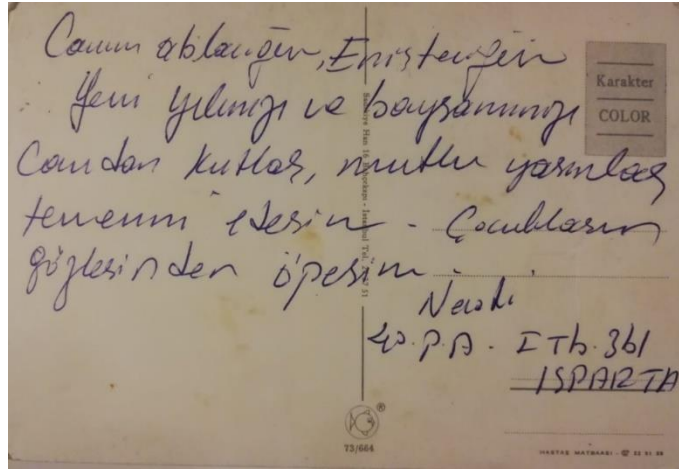 Canım ablacığım, Eniştenğin
Yeni yılınızı ve bayramınızı
Candan kutlar, mutlu yarınlar
temenni ederim - Çocukların
gözlerinden öperim.
I Tb. 3bl
ISPARTA
Karakter
COLOR
73/664
HASTAŞ MATBAASI